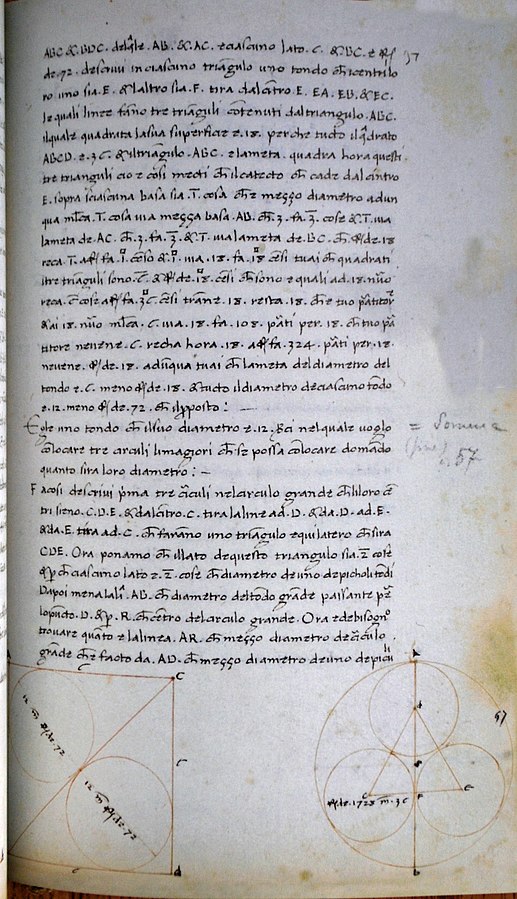 ABC & BDC. del q̄le. AB. & AC. e ciascuno lato. C. & BC. e
de. 72. descrivi in ciascuno triāgulo uno tondo
ro uno sia. E. & laltro sia. F. tira dal cētro. E. EA. EB. & EC.
le quali linee fāno tre triāguli cōtenuti dal triangulo. ABC.
il quale quadruta la sua superficie e. 18. perche tucto il q̄drato
ABCD. e 36 & il triāgulo. ABC. e la meta. quadra hora questi
tre trianguli cio e cosi mecti ch̄ il catecto ch̄ cade dal cintro
E. sopra ciascuna basa sia. 1. cosa ch̄ e mezzo diametro adun
qua m̄lca. 1. cosa via mezza basa. AB. ch̄. 3. fa. 3. cose & 1. via
la meta de. AC. ch̄. 3. fa. 3. & 1. via la meta de. BC. ch̄. de. 18
reca. 1. a fa. 1. cēso & 1. via. 18. fa. 18 cēsi tu ai ch̄ quadrati
i tre triāguli sono. 6 & de. 18. cēsi ch̄ sono equali ad. 18. nūo
reca. 6 cose a fa. 36. cēsi trāne. 18. resta. 18. ch̄ e tuo p̄titore
& ai 18. nūo m̄lca. 6. via. 18. fa. 108. p̄ti per. 18. ch̄ tuo p̄
titore nevene. 6. recha hora. 18. a fa. 324. p̄ti per. 18.
nevene. de. 18. adūqua tu ai ch̄ la meta del diametro del
tondo e. 6. meno de. 18. & tucto il diametro de ciascuno tōdo
e. 12. meno de. 72. ch̄ il p̄posto : —
Egle uno tondo ch̄ il suo diametro e. 12. nel quale voglo
colocare tre circuli li magiori ch̄ se possa colocare domādo
quanto sira loro diametro : —
Fa cosi descrivi p̄ma tre c̄culi nel arculo grande ch̄ li loro cē
tri sieno. C. D. E. & dal cētro. C. tira la linea ad. D. & da. D. ad. E.
& da. E. tira ad. C. ch̄ farano uno triāgulo equilatero ch̄ sira
CDE. Ora ponamo ch̄ il lato de questo triangulo sia. 2. cose
& p̄ ch̄ ciascuno lato e. 2. cose ch̄ diametro de uno de picholi tōdi
Da poi mena la li. AB. ch̄ diametro del tōdo grāde passante p̄
lo pūcto. D. & p̄. R. ch̄ cētro del arculo grande. Ora e de bisogn̄
trovare quāto e la linea. AR. ch̄ mezzo diametro de c̄culo
grāde ch̄ e facto da. AD. ch̄ mezzo diametro de uno de picu
= Somma
57
C
d
12 m̄ de. 72
12 m̄ de. 72
A
57
C
E
de. 1728 m̄. 36